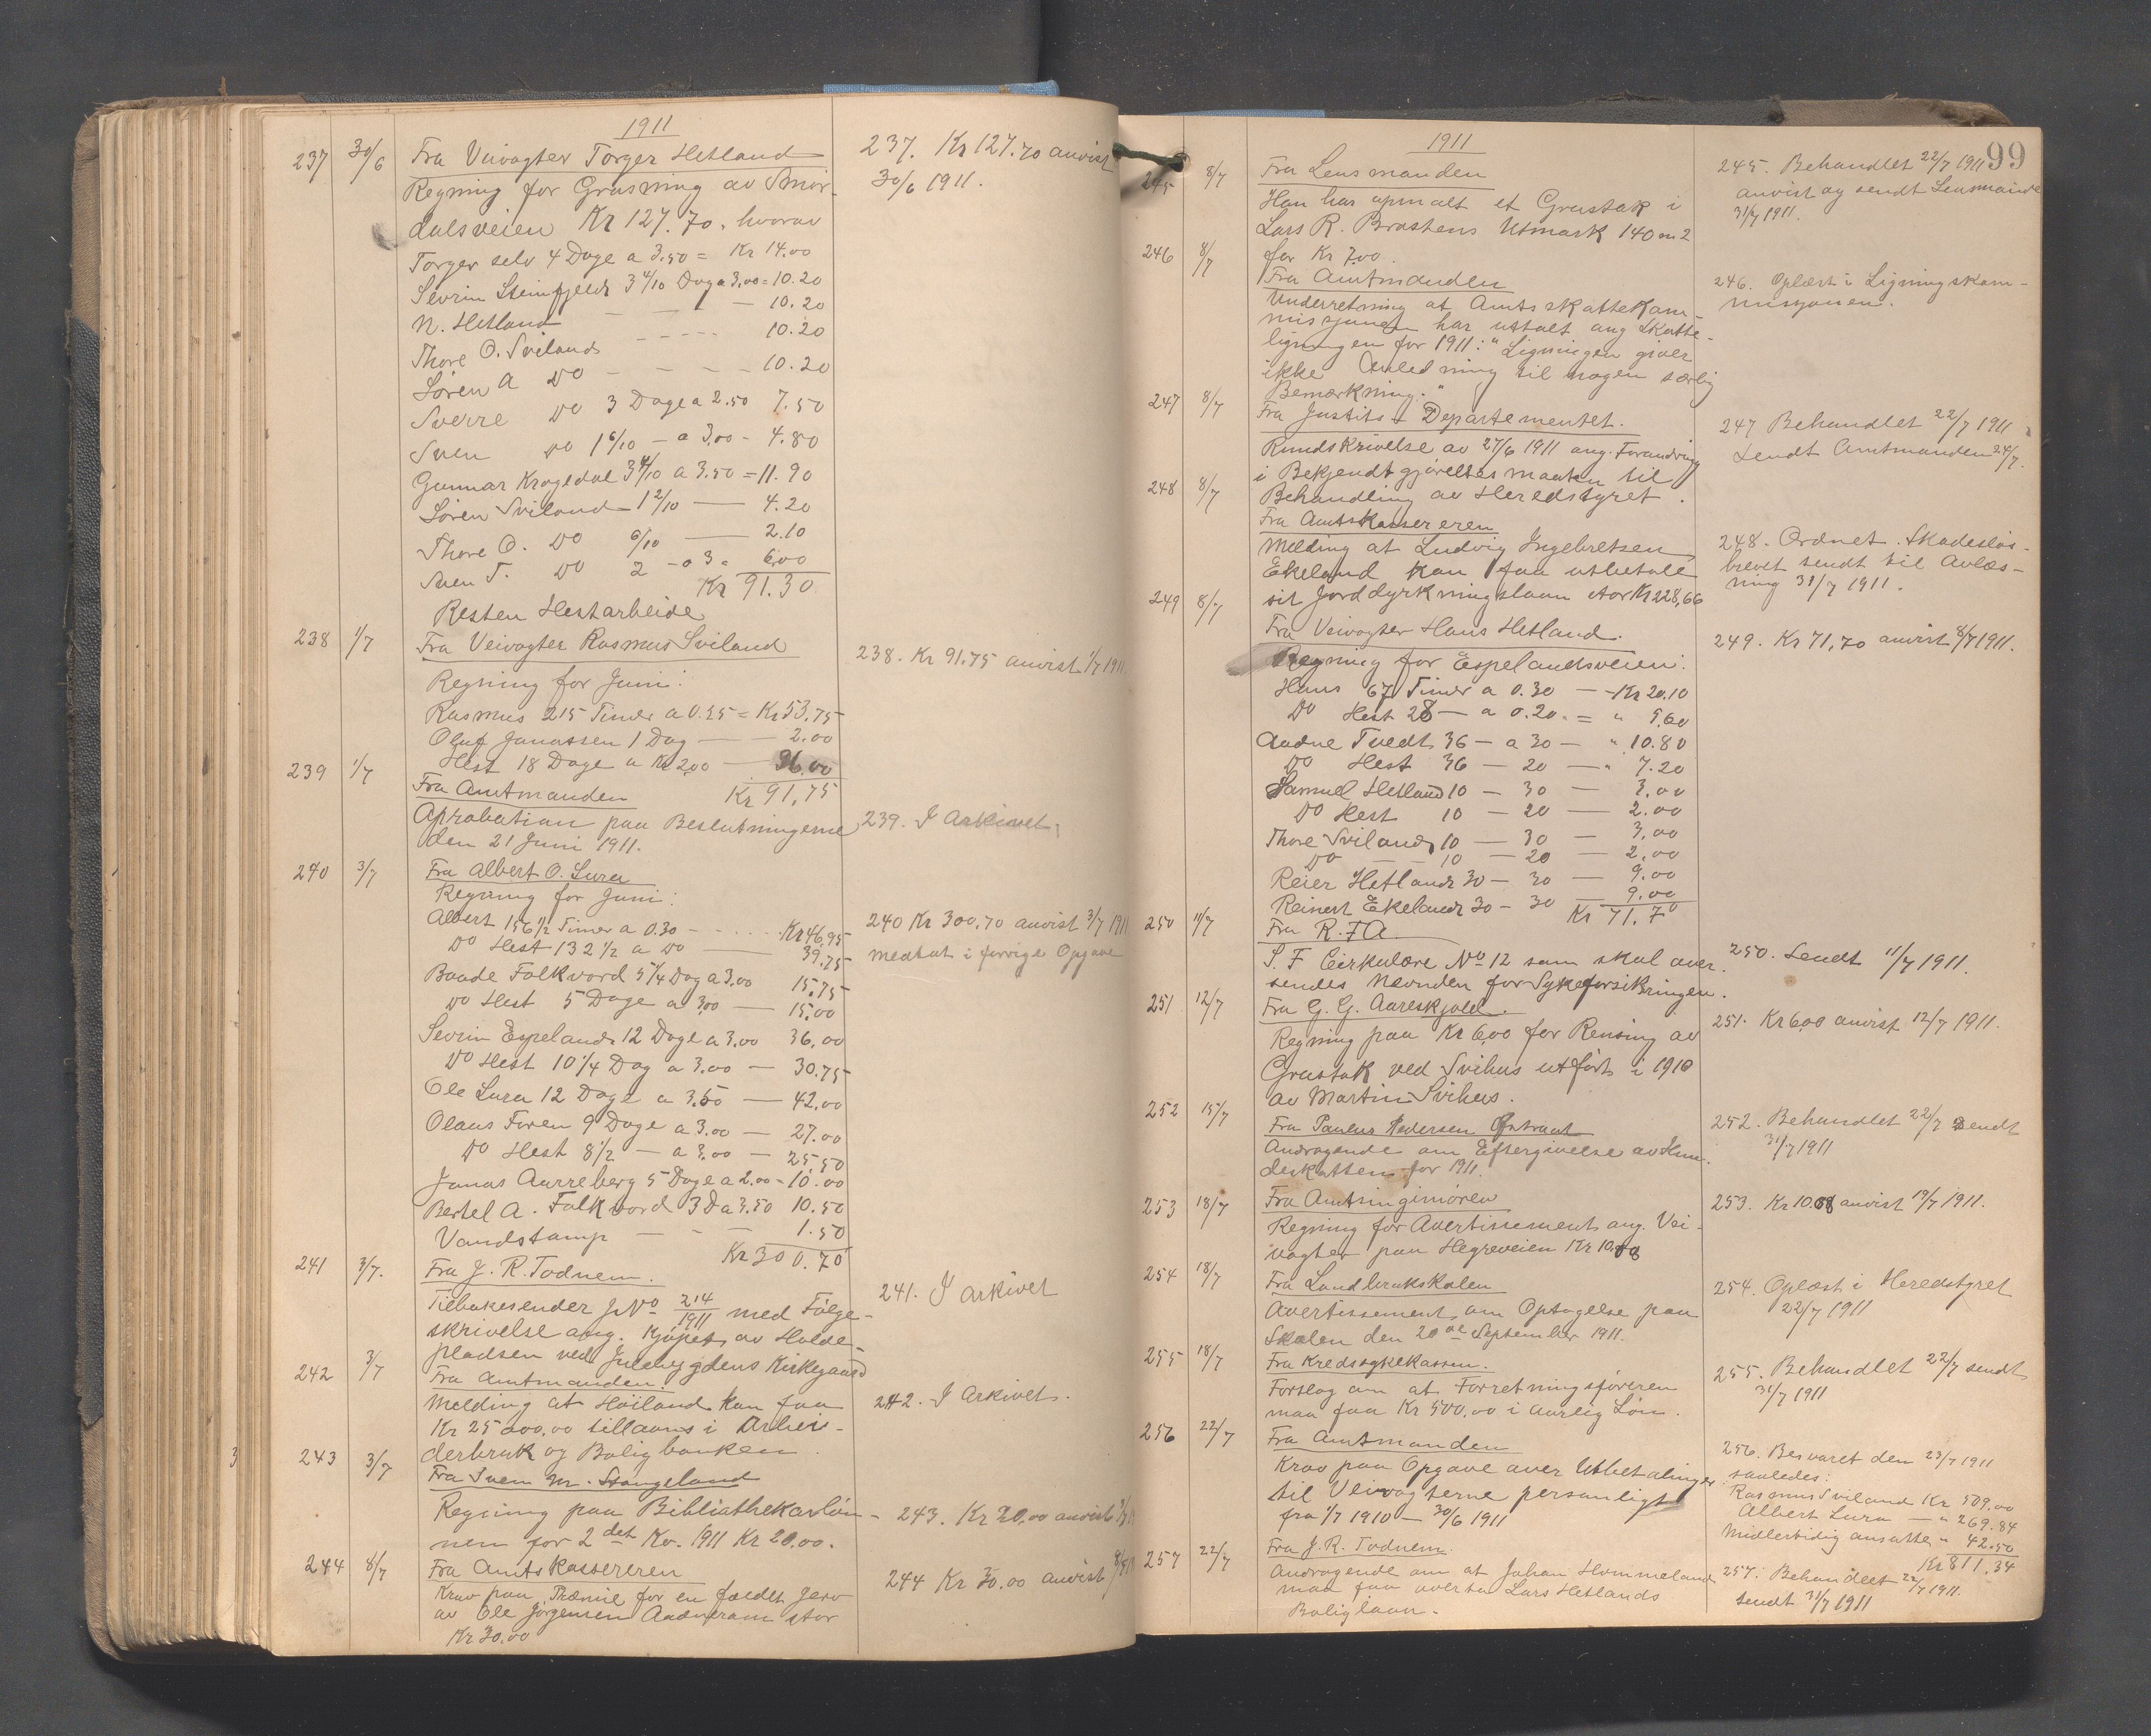 1911
237 30/6 Fra Veivogter Torger Hetland
Regning for Grusning av Smør-
dalsveien Kr 127.70. hvorav
Torger selv 4 Dage a 3.50 = Kr 14.00
Sevrin Steinfjeld 3 4/10 Dag a 3.00 = 10.20
N. Hetland — — — 10.20
Thore O. Sviland - - - - 10.20
Søren A do - - - - 10.20
Sverre do 3 Dage a 2.50 7.50
Sven do 1 6/10 — a 3.00 - 4.80
Gunnar Kragedal 3 4/10 a 3.50 = 11.90
Søren Sviland 1 2/10 — 4.20
Thore O. do 6/10 — 2.10
Sven T. do 2 - a 3 = 6.00
Kr 91.30
Resten Hestarbeide
237. Kr 127.70 anvist
30/6 1911.
238 1/7 Fra Veivogter Rasmus Sviland
Regning for Juni:
Rasmus 215 Timer a 0.25 = Kr 53.75
Oluf Jonassen 1 Dag — — 2.00
Hest 18 Dage a Kr 2.00 — 36.00
Kr 91.75
238. Kr 91.75 anvist 1/7 1911.
239 1/7 Fra Amtmanden
Aprobation paa Beslutningerne
den 21 Juni 1911.
239. I Arkivet.
240 3/7 Fra Albert O. Lura
Regning for Juni:
Albert 156 1/2 Timer a 0.30 - - - - Kr 46.95
do Hest 132 1/2 a do — 39.75
Baade Folkvord 5 1/4 Dag a 3.00 15.75
do Hest 5 Dage a 3.00 — 15.00
Sevrin Espeland 12 Dage a 3.00 36.00
do Hest 10 1/4 Dag a 3.00 — 30.75
Ole Lura 12 Dage a 3.50 — 42.00
Olaus Foren 9 Dage a 3.00 — 27.00
do Hest 8 1/2 — a 3.00 — 25.50
Jonas Aurreberg 5 Dage a 2.00 - 10.00
Bertel A. Folkvord 3 D a 3.50 10.50
Vandstamp — - 1.50
Kr 300.70
240 Kr 300.70 anvist 3/7 1911
medtat i forrige Opgave
241 3/7. Fra J. R. Todnem.
Tilbakesender J No 214/1911 med Følge-
skrivelse ang. Kjøpet av Holde-
pladsen ved Julebygdens Kirkegaard
241. I arkivet
242 3/7 Fra Amtmanden.
Melding at Høiland kan faa
Kr 25 000.00 tillaans i Arbei-
derbruk og Boligbanken.
242. I Arkivet.
3
243 3/7 Fra Sven M. Stangeland
Regning paa Bibliothekarløn-
nen for 2 det Kv. 1911 Kr 20.00.
243. Kr 20.00 anvist 3/7
244 8/7 Fra Amtskassereren
Krav paa Præmie for en fældet Jerv
av Ole Jørgensen Aadneram stor
Kr 30.00
244 Kr 30.00 anvist 8/7
99
1911
245 8/7 Fra Lensmanden
Han har opmaalt et Grustak i
Lars R. Brastens Utmark 140 m2
for Kr 7.00.
245. Behandlet 22/7 1911
anvist og sendt Lensmanden
31/7 1911.
246 8/7 Fra Amtmanden
Underretning at Amtsskattekom-
missjonen har uttalt ang Skatte-
ligningen for 1911: "Ligningen giver
ikke Anledning til nogen særlig
Bemærkning."
246. Oplæst i Ligningskom-
missjonen.
247 8/7 Fra Justits Departementet.
Rundskrivelse av 27/6 1911 ang. Forandring
i Bekjendtgjørelses maaten til
Behandling av Heredstyret.
247 Behandlet 22/7 1911
Sendt Amtmanden 24/7.
248 8/7 Fra Amtskassereren
Melding at Ludvig Ingebretsen
Ekeland kan faa utbetale
sit Jorddyrkningslaan stor Kr 228,66
248. Ordnet. Skadesløs-
brevet sendt til Avlæs-
ning 31/7 1911.
249 8/7 Fra Veivogter Hans Hetland.
Regning for Espelandsveien:
Hans 67 Timer a 0.30 — Kr 20.10
do Hest 28 — a 0.20. = " 5.60
Aadne Tvedt 36 — a 30 — " 10.80
do Hest 36 — 20 — " 7.20
Samuel Hetland 10 — 30 — 3.00
do Hest 10 — 20 — 2.00
Thore Sviland 10 — 30 — 3.00
do — — 10 — 20 — 2.00
Reier Hetland 30 — 30 — 9.00
Reinert Ekeland 30 - 30 — 9.00
Kr 71.70
249. Kr 71.70 anvist 8/7 1911.
250 11/7 Fra R. F A.
S. F Cirkulære No 12 som skal over-
sendes Nevnden for Sykeforsikringen.
250. Sendt 11/7 1911.
251 12/7 Fra G. G. Aareskjold.
Regning paa Kr 6,00 for Rensing av
Grustak ved Svihus utført i 1910
av Martin Svihus.
251. Kr 6,00 anvist 12/7 1911.
252 15/7 Fra Paulus Pedersen Østraat
Andragende om Eftergivelse av Hun-
deskatten for 1911.
252. Behandlet 22/7 Sendt
31/7 1911
253 18/7 Fra Amtsingeniøren
Regning for Avertissement ang. Vei-
vogter paa Hegreveien Kr 10.08
253. Kr 10.08 anvist 19/7 1911.
254 18/7 Fra Landbrukskolen
Avertissement om Optagelse paa
Skolen den 20de September 1911.
254. Oplæst i Heredstyret
22/7 1911
255 18/7 Fra Kredssykekassen.
Forslag om at Forretningsføreren
maa faa Kr 500.00 i aarlig Løn.
255. Behandlet 22/7 sendt
31/7 1911
256 22/7 Fra Amtmanden
Krav paa Opgave over Utbetalinger
til Veivogterne personligt
fra 1/7 1910 — 30/6 1911
256. Besvaret den 23/7 1911
saaledes:
Rasmus Sviland Kr 509.00
Albert Lura — " 269.84
Midlertidig ansatte " 42.50
Kr 811.34
257 22/7 Fra J. R. Todnem.
Andragende om at Johan Hommeland
maa faa overta Lars Hetlands
Boliglaan.
257. Behandlet 22/7 1911.
sendt 31/7 1911